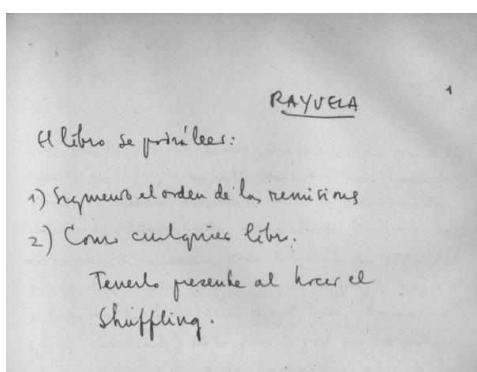 RAYUELA 1
El libro se podrá leer:
1) Siguiendo el orden de las remisiones
2) Como cualquier libro.
Tenerlo presente al hacer el
Shuffling.